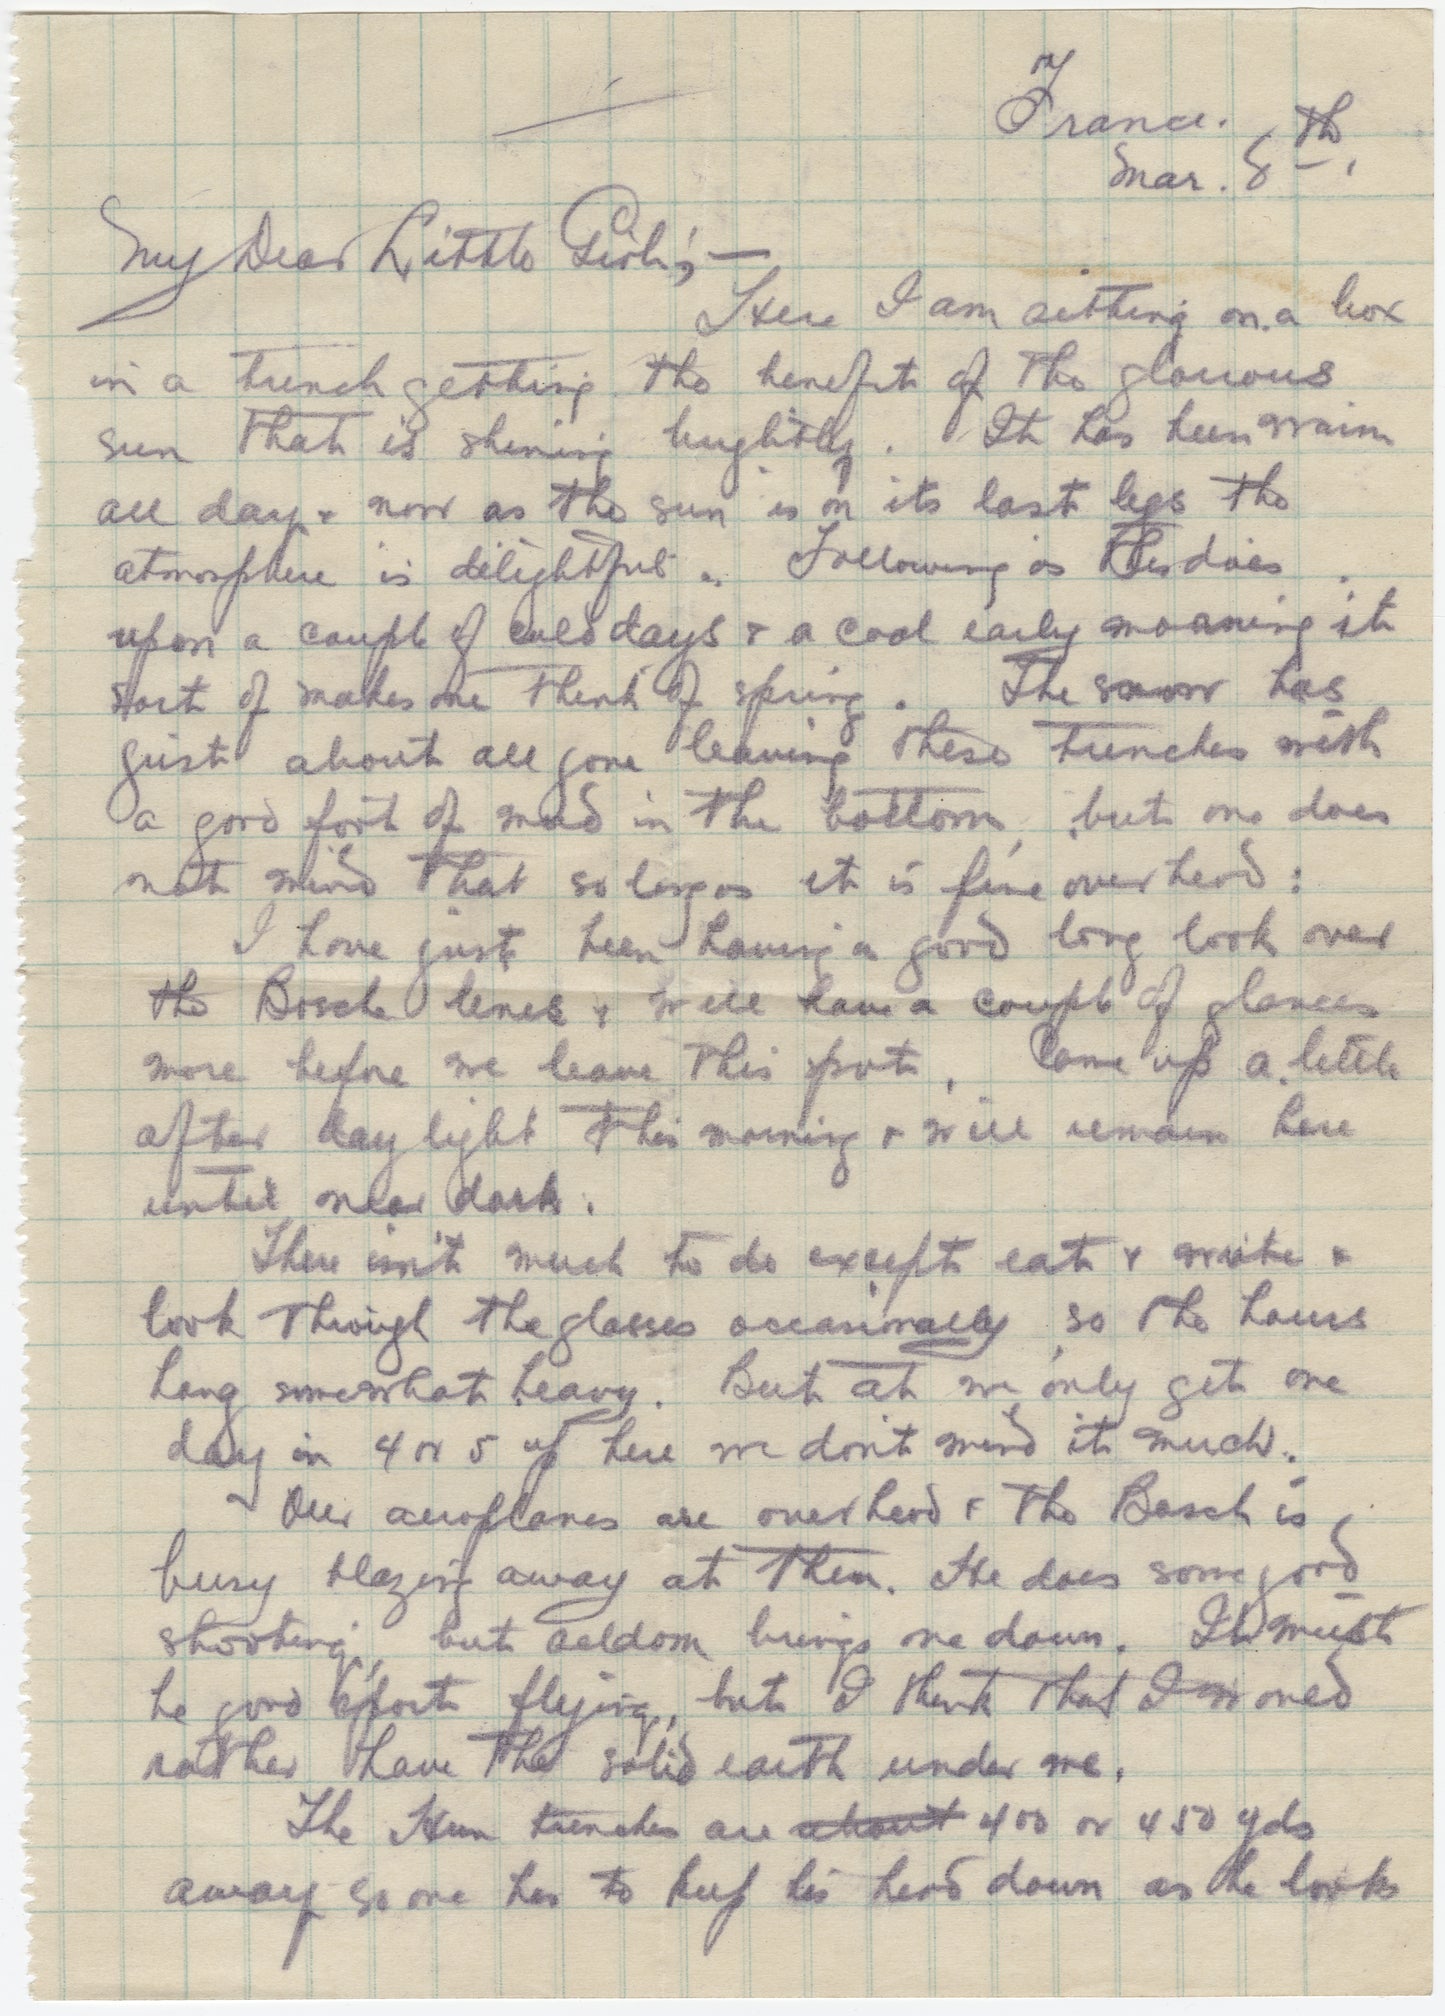 France.
Mar. 8th.
My Dear Little Girl;—
Here I am sitting on a box
in a trench getting the benefit of the glorious
sun that is shining brightly. It has been warm
all day & now as the sun is on its last legs the
atmosphere is delightful. Following as this does
upon a couple of cold days & a cool early morning it
sort of makes one think of spring. The snow has
just about all gone leaving these trenches with
a good foot of mud in the bottom, but one does
not mind that so long as it is fine overhead:
I have just been having a good long look over
the Bosche lines & will have a couple of glances
more before we leave this spot. Came up a little
after daylight this morning & will remain here
until near dark.
There isn't much to do except eat & write &
look through the glasses occasionally, so the hours
hang somewhat heavy. But at we only get one
day in 4 or 5 up here we don't mind it much.
Our aeroplanes are overhead & the Bosch is
busy blazing away at them. He does some good
shooting, but seldom brings one down. It must
be good sport flying, but I think that I would
rather have the solid earth under me.
The Hun trenches are about 400 or 450 yds
away so one has to keep his head down as he looks